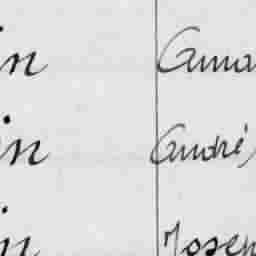 in Ama
in André
in Josep